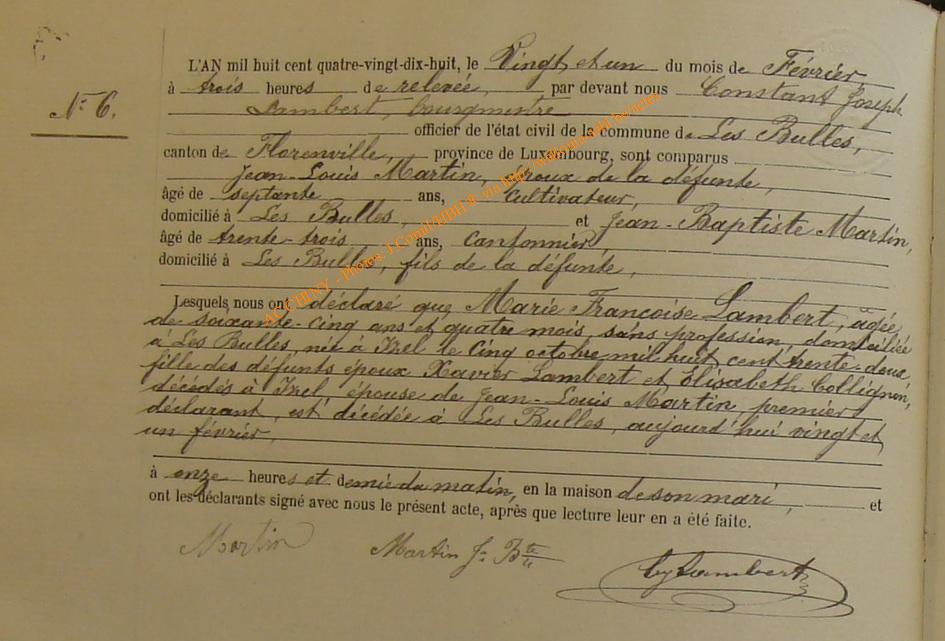 L'AN mil huit cent quatre-vingt-dix-huit, le Vingt et un du mois de Février
à trois heures de relevée, par devant nous Constant Joseph
N° 6.
Lambert, bourgmestre
officier de l'état civil de la commune de Les Bulles,
canton de Florenville, province de Luxembourg, sont comparus
Jean-Louis Martin, époux de la défunte,
âgé de septante ans, Cultivateur,
domicilié à Les Bulles, et Jean-Baptiste Martin,
âgé de trente-trois ans, Cantonnier,
domicilié à Les Bulles, fils de la défunte,
Lesquels nous ont déclaré que Marie Françoise Lambert, âgée
de soixante-cinq ans et quatre mois, sans profession, domiciliée
à Les Bulles, née à Izel le Cinq octobre mil huit cent trente-deux
fille des défunts époux Xavier Lambert et Elisabeth Collignon,
décédés à Izel, épouse de Jean-Louis Martin, premier
déclarant, est décédée à Les Bulles, aujourd'hui vingt et
un février,
à onze heures et demie du matin, en la maison de son mari, et
ont les déclarants signé avec nous le présent acte, après que lecture leur en a été faite.
Martin Martin J. Bte Lambert